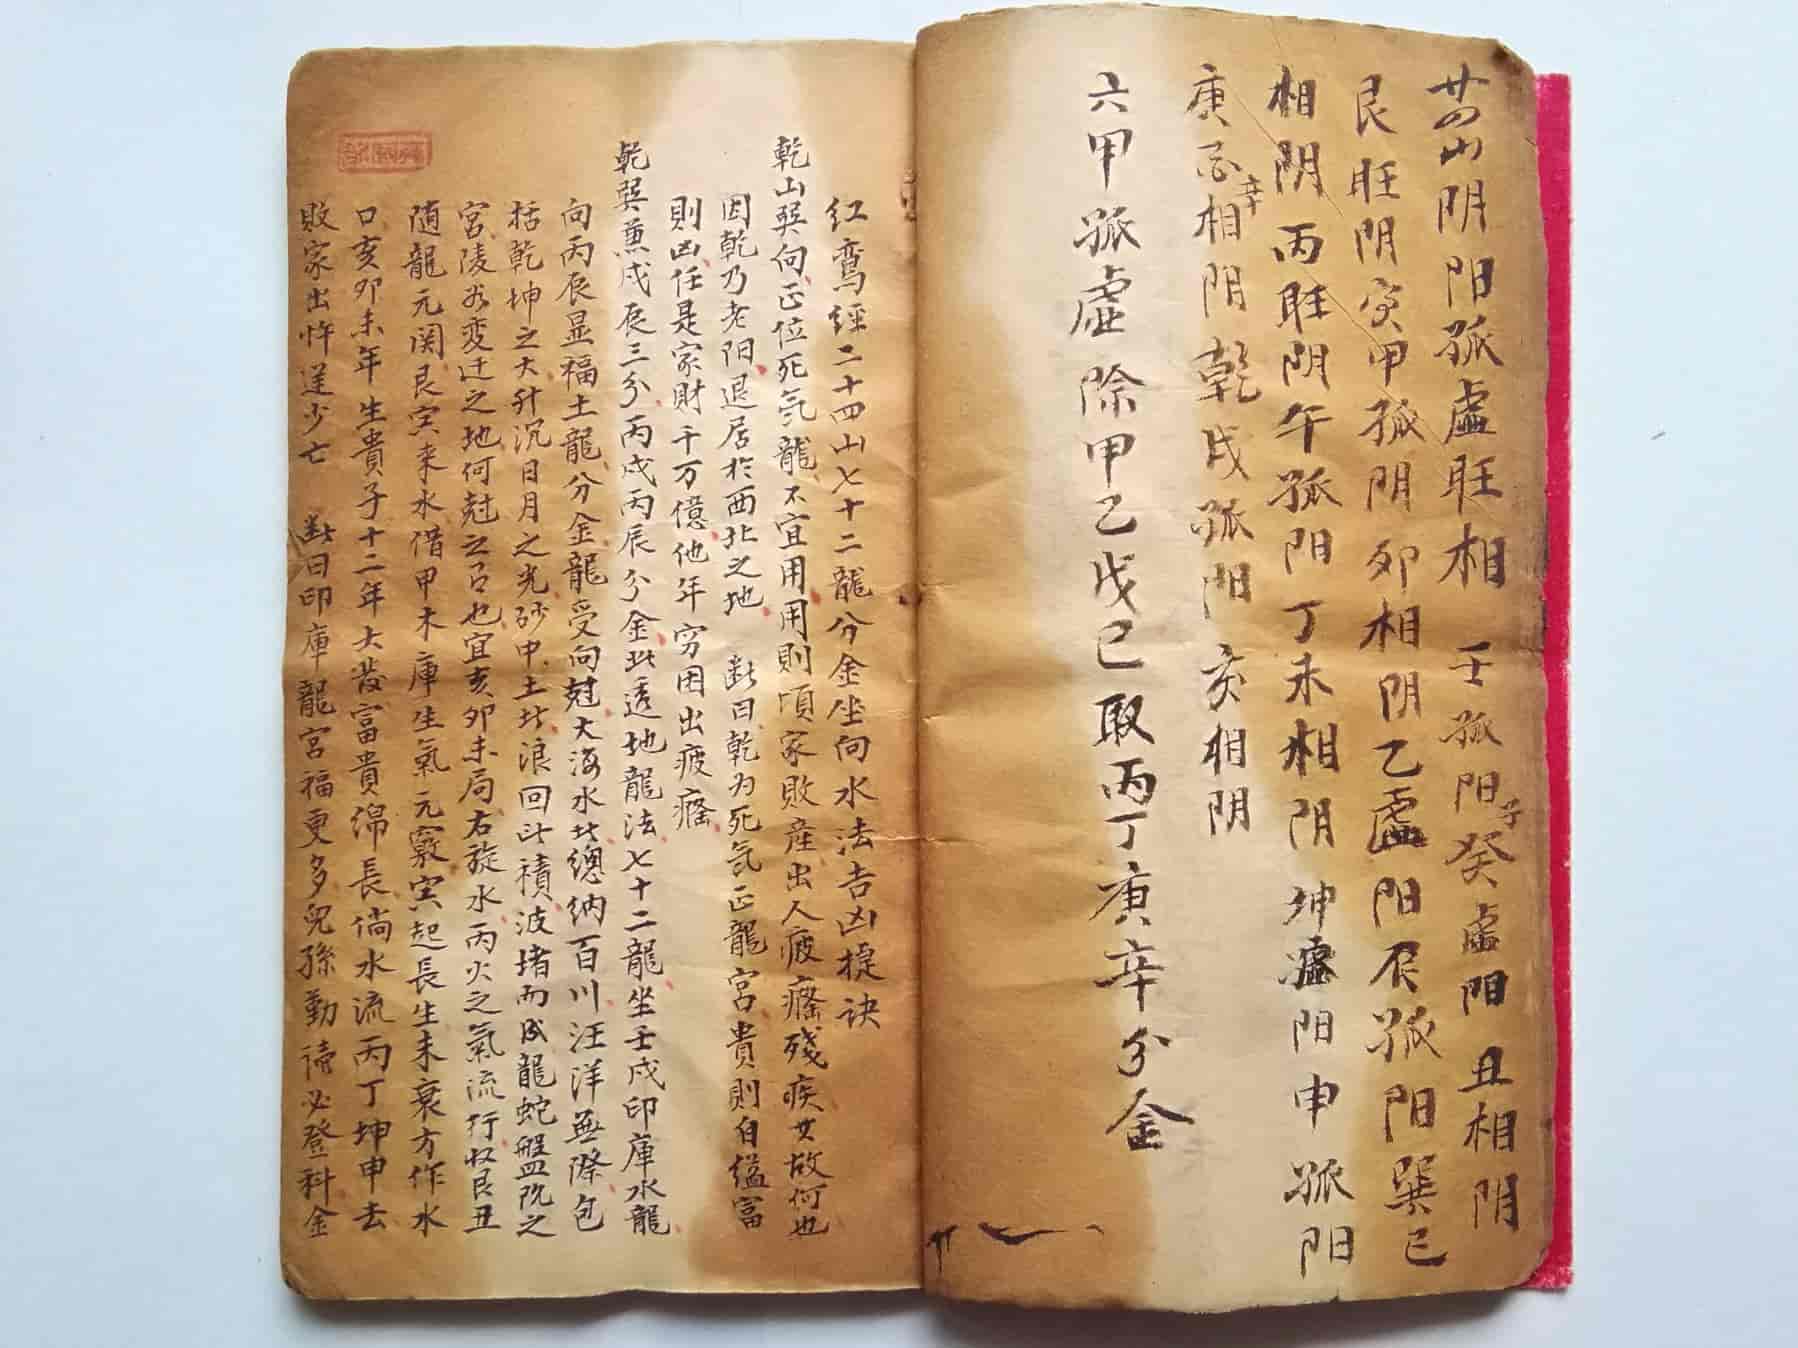 廿四山阴阳孤虚旺相 壬孤阳子癸虚阳丑相阴
艮旺阴寅甲孤阴卯相阴乙虚阳辰孤阳巽巳
相阴丙旺阴午孤阳丁未相阴坤虚阳申孤阳
庚酉辛相阴乾戌孤阳亥相阴
六甲孤虚除甲乙戊己取丙丁庚辛分金
红鸾經二十四山七十二龍分金坐向水法吉凶捷诀
乾山巽向正位死氣龍不宜用用則頃家敗産出人疲癃殘疾其故何也
因乾乃老阳退居於西北之地 斷曰乾为死氣正龍宮貴則自縊富
則凶任是家財千万億他年穷困出疲癃
乾巽兼戌辰三分丙戌丙辰分金此透地龍法七十二龍坐壬戌印庫水龍
向丙辰显福土龍分金龍受向尅大海水此總纳百川汪洋無際包
括乾坤之大升沉日月之光砂中土此浪回此積波堵而成龍蛇盤阮之
宮陵谷変迁之地何尅之有也宜亥卯未局右旋水丙火之氣流行收艮丑
随龍元関艮寅来水借甲木庫生氣元竅寅起長生未衰方作水
口亥卯未年生貴子十二年大發富貴绵長倘水流丙丁坤申去
敗家出忤逆少亡 斷曰印庫龍宮福更多兒孫勤读必登科金